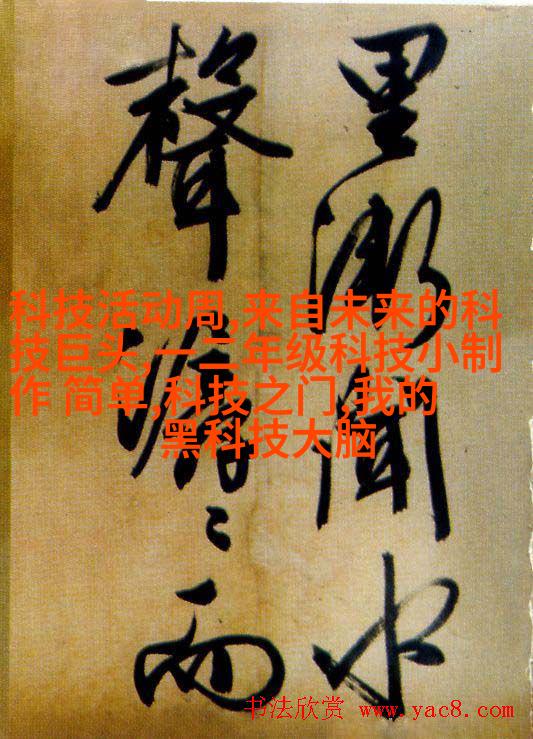 里漸聞水
聲潺〻而
科技活动周,来自未来的科
技巨头,一二年级科技小制
作 简单,科技之门,我的
黑科技大脑
书法欣赏 www.yac8.com